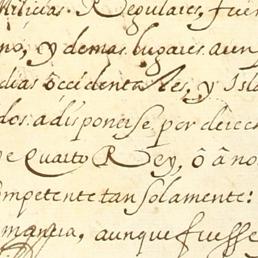 Milicias Regulares, fuer
no, y demas lugares aun
dias occidentales, y Isl
dos a disponerse per derec
e Quarto Rey, ô â no
mpetente tan solamente:
mancia, aunque fuesse